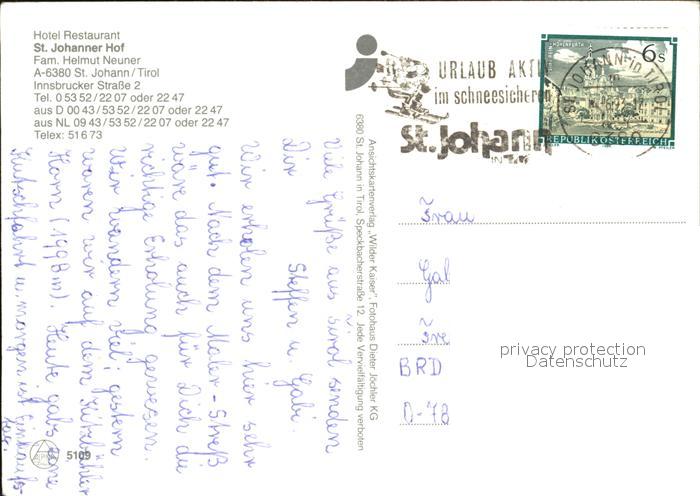 Hotel Restaurant
St. Johanner Hof
Fam. Helmut Neuner
A-6380 St. Johann/Tirol
Innsbrucker Straße 2
Tel. 0 53 52 / 22 07 oder 22 47
aus D 00 43 / 53 52 / 22 07 oder 22 47
aus NL 09 43 / 53 52 / 22 07 oder 22 47
Telex: 51 6 73
URLAUB AKTI
im schneesicheren
St. Johann
IN
6 S
REPUBLIK ÖSTERREICH
ST. JOHANN in TIROL
Viele Grüße aus Tirol senden
Dir Steffen u. Gabi.
Wir erholen uns hier sehr
gut. Nach dem Maler-Streß
wäre das auch für Dich die
richtige Erholung gewesen.
Wir wandern viel! gestern
waren wir auf dem Kitzbühler
Horn (1998m). Heute gabs eine
Kutschfahrt u. morgen ist Einkaufs-
tag.
Ansichtskartenverlag „Wilder Kaiser", Fotohaus Dieter Jöchler KG
6380 St. Johann in Tirol, Speckbacherstraße 12. Jede Vervielfältigung verboten
Frau
Gab
Fre
BRD
D-78
privacy protection
Datenschutz
5109